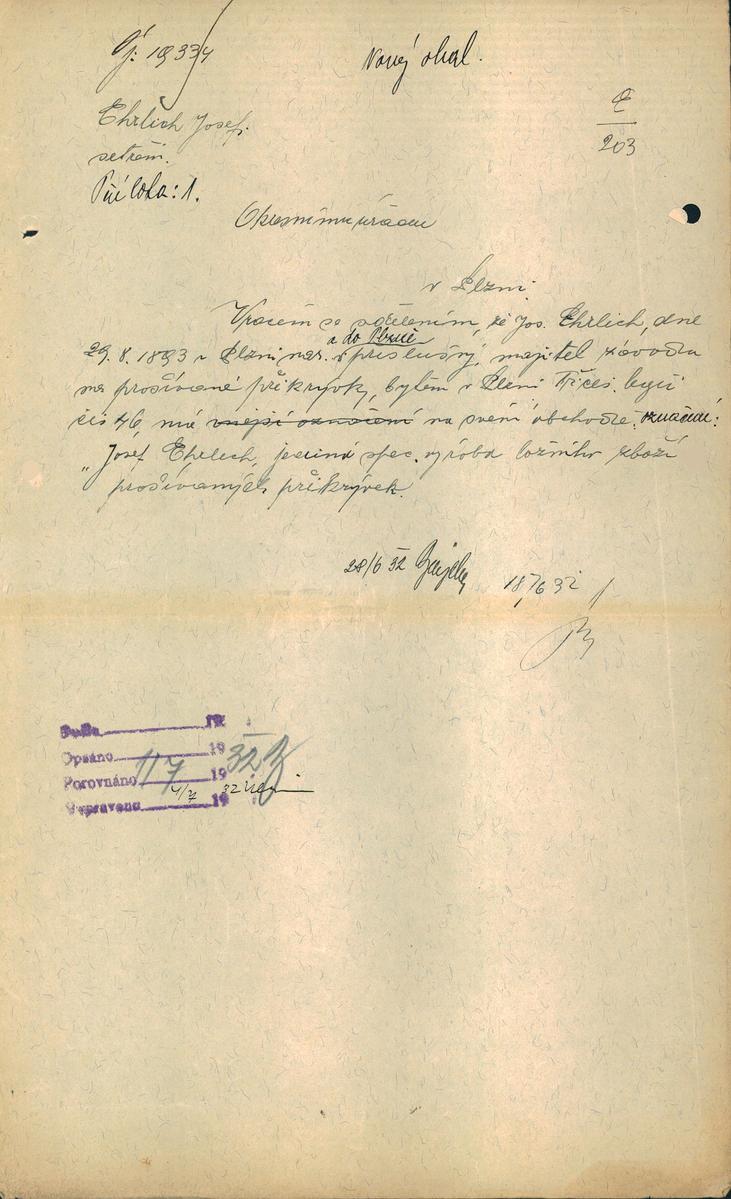 Čj: 19334
Nový obal.
E
203
Ehrlich Josef.
šetření.
Příloha: 1.
Okresnímu úřadu
v Plzni.
Vracím se sdělením, že Jos. Ehrlich, dne
a do Plzně
29. 8. 1893 v Plzni nar. příslušný, majitel závodu
na prošívané přikrývk, bytem v Plzni Tř. čes. legií
čís 46, má vnější označení na svém obchodě označení:
"Josef Ehrlich, jediná spec. výroba ložního zboží
prošívaných přikrývek.
28/6 32
18/6 32
Došlo 19
Opsáno 19 32
Porovnáno 1/7 19
4/7 32
Vypraveno 19